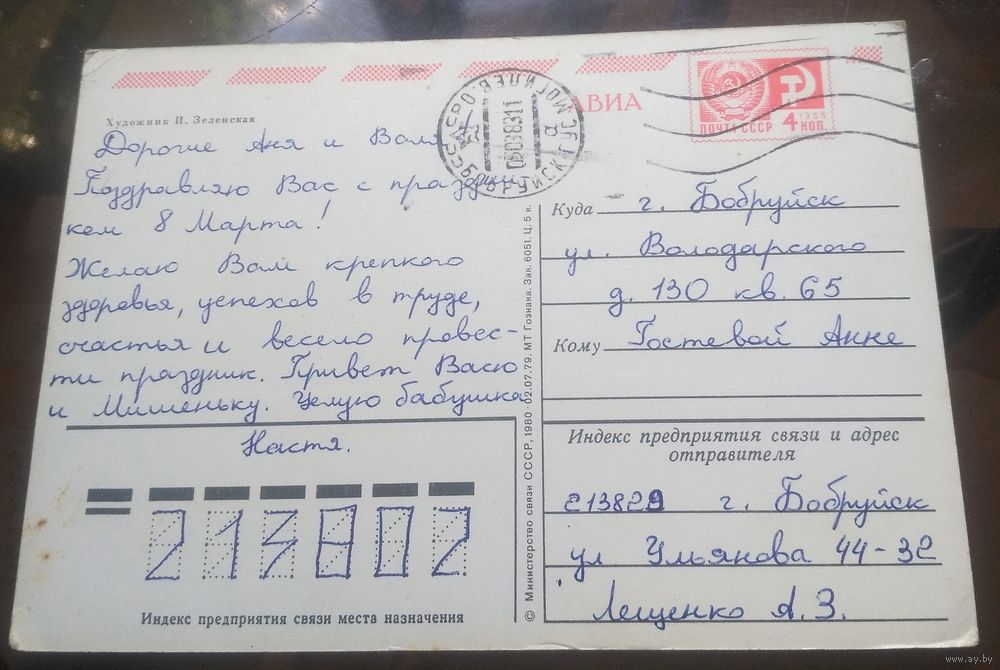 АВИА
ПОЧТА СССР
1966
4 КОП.
Художник И. Зеленская
Дорогие Аня и Валя
Поздравляю Вас с праздни
ком 8 Марта!
Желаю Вам крепкого
здоровья, успехов в труде,
счастья и весело провес-
ти праздник. Привет Васю
и Мишеньку. Целую бабушка
Настя.
213807
Индекс предприятия связи места назначения
© Министерство связи СССР, 1980 · 02.07.79. МТ Гознака. Зак. 6051. Ц. 5 к.
Куда г. Бобруйск
ул. Володарского
д. 130 кв. 65
Кому Гостевой Анне
Индекс предприятия связи и адрес
отправителя
213829 г. Бобруйск
ул Ульянова 44-32
Лещенко А. З.
www.ay.by